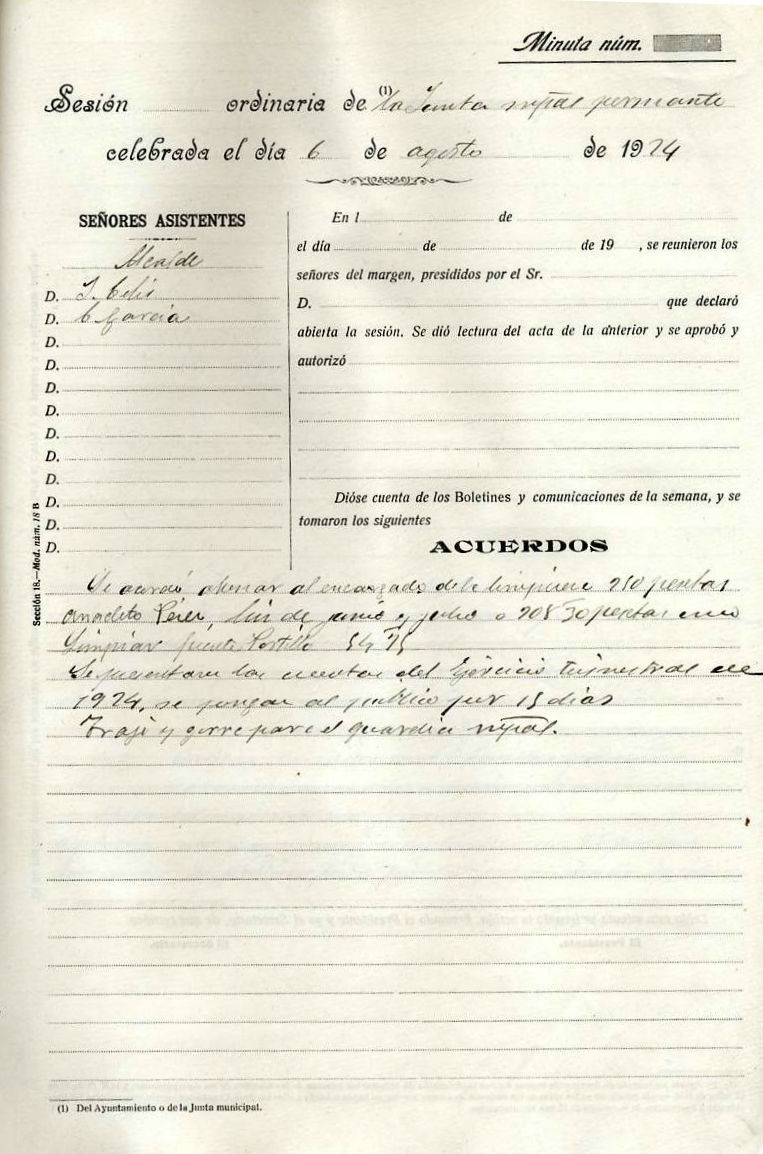 Minuta núm.
Sesión ordinaria de (1) la Junta mpal permante
celebrada el día 6 de agosto de 1924
SEÑORES ASISTENTES
Alcalde
D. J. Celis
D. C Garcia
D.
D.
D.
D.
D.
D.
D.
D.
D.
D.
Sección 18.—Mod. núm. 18 B
En l de
el día de de 19 , se reunieron los
señores del margen, presididos por el Sr.
D. que declaró
abierta la sesión. Se dió lectura del acta de la anterior y se aprobó y
autorizó
Dióse cuenta de los Boletines y comunicaciones de la semana, y se
tomaron los siguientes
ACUERDOS
Se acordó abonar al encargado de la limpieza pesetas
Anacleto Perez, luz de junio y julio a 208 30 pesetas
Limpiar fuente Portillo 54 75
Se presentaron las cuentas del Ejercicio trimestral de
1924, se pongan al publico por 15 dias
Traje y gorra para el guardia mpal.
(1) Del Ayuntamiento o de la Junta municipal.